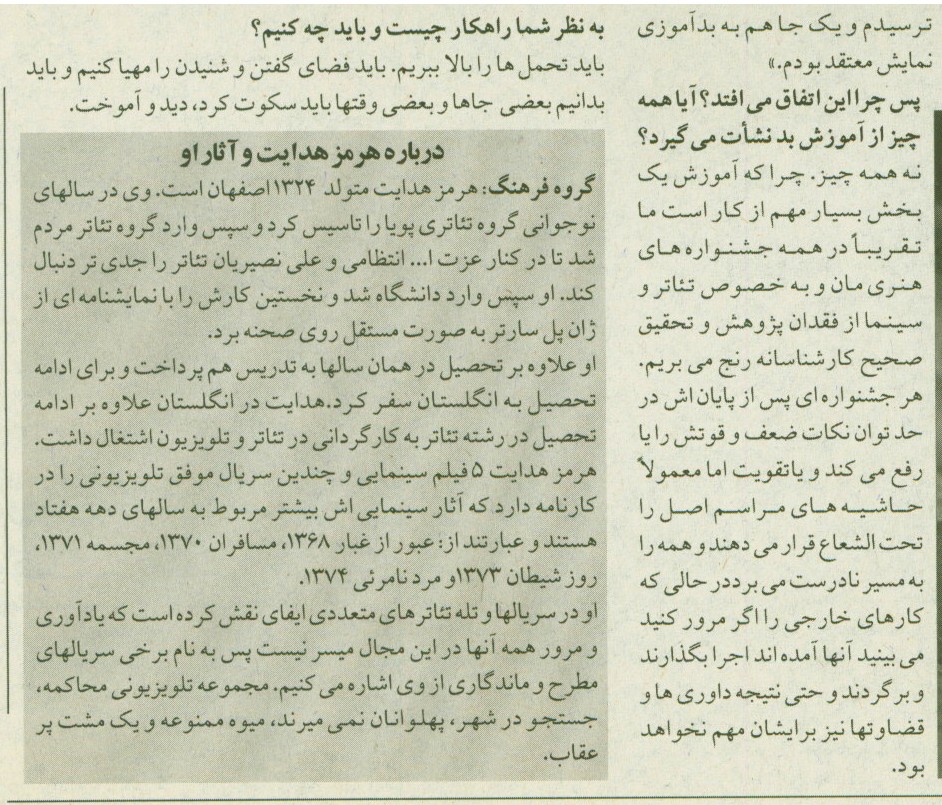 ترسیدم و یک جا هم به بدآموزی
نمایش معتقد بودم.»
پس چرا این اتفاق می افتد؟ آیا همه
چیز از آموزش بد نشأت می گیرد؟
نه همه چیز. چرا که آموزش یک
بخش بسیار مهم از کار است ما
تقریباً در همه جشنواره های
هنری مان و به خصوص تئاتر و
سینما از فقدان پژوهش و تحقیق
صحیح کارشناسانه رنج می بریم.
هر جشنواره ای پس از پایان اش در
حد توان نکات ضعف و قوتش را یا
رفع می کند و یاتقویت اما معمولاً
حاشیه های مراسم اصل را
تحت الشعاع قرار می دهند و همه را
به مسیر نادرست می برد در حالی که
کارهای خارجی را اگر مرور کنید
می بینید آنها آمده اند اجرا بگذارند
و برگردند و حتی نتیجه داوری ها و
قضاوتها نیز برایشان مهم نخواهد
بود.
به نظر شما راهکار چیست و باید چه کنیم؟
باید تحمل ها را بالا ببریم. باید فضای گفتن و شنیدن را مهیا کنیم و باید
بدانیم بعضی جاها و بعضی وقتها باید سکوت کرد، دید و آموخت.
درباره هرمز هدایت و آثار او
گروه فرهنگ: هرمز هدایت متولد ۱۳۲۴ اصفهان است. وی در سالهای
نوجوانی گروه تئاتری پویا را تاسیس کرد و سپس وارد گروه تئاتر مردم
شد تا در کنار عزت ا... انتظامی و علی نصیریان تئاتر را جدی تر دنبال
کند. او سپس وارد دانشگاه شد و نخستین کارش را با نمایشنامه ای از
ژان پل سارتر به صورت مستقل روی صحنه برد.
او علاوه بر تحصیل در همان سالها به تدریس هم پرداخت و برای ادامه
تحصیل به انگلستان سفر کرد.هدایت در انگلستان علاوه بر ادامه
تحصیل در رشته تئاتر به کارگردانی در تئاتر و تلویزیون اشتغال داشت.
هرمز هدایت ۵ فیلم سینمایی و چندین سریال موفق تلویزیونی را در
کارنامه دارد که آثار سینمایی اش بیشتر مربوط به سالهای دهه هفتاد
هستند و عبارتند از: عبور از غبار ۱۳۶۸، مسافران ۱۳۷۰، مجسمه ۱۳۷۱،
روز شیطان ۱۳۷۳و مرد نامرئی ۱۳۷۴.
او در سریالها و تله تئاترهای متعددی ایفای نقش کرده است که یادآوری
و مرور همه آنها در این مجال میسر نیست پس به نام برخی سریالهای
مطرح و ماندگاری از وی اشاره می کنیم. مجموعه تلویزیونی محاکمه،
جستجو در شهر، پهلوانان نمی میرند، میوه ممنوعه و یک مشت پر
عقاب.